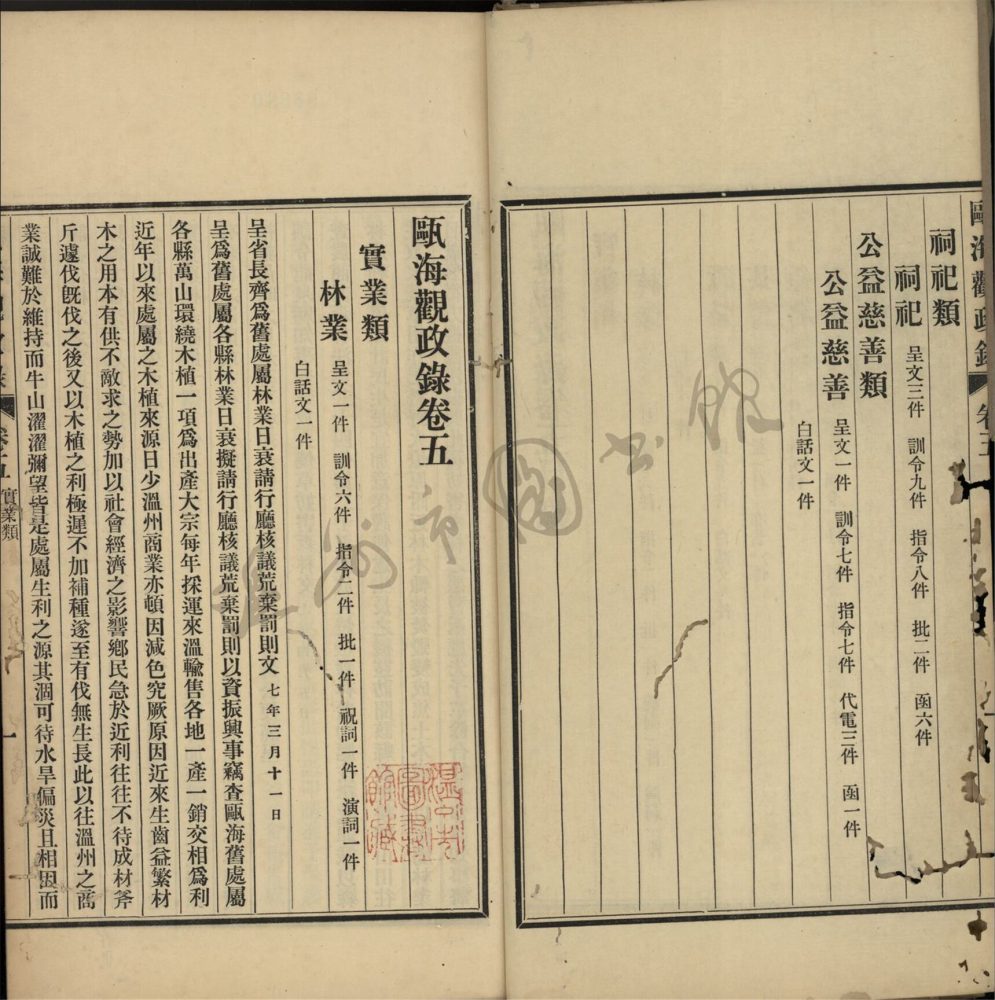 甌海觀政錄 卷五
祠祀類
祠祀 呈文三件 訓令九件 指令八件 批二件 函六件
公益慈善類
公益慈善 呈文一件 訓令七件 指令七件 代電三件 函一件
白話文一件
甌海觀政錄卷五
實業類
林業 呈文一件 訓令六件 指令二件 批一件 祝詞一件 演詞一件
白話文一件
呈省長齊爲舊處屬林業日衰請行廳核議荒棄罰則文 七年三月十一日
呈爲舊處屬各縣林業日衰擬請行廳核議荒棄罰則以資振興事竊查甌海舊處屬
各縣萬山環繞木植一項爲出產大宗每年採運來溫輸售各地一產一銷交相爲利
近年以來處屬之木植來源日少溫州商業亦頓因減色究厥原因近來生齒益繁材
木之用本有供不敵求之勢加以社會經濟之影響鄉民急於近利往往不待成材斧
斤遽伐旣伐之後又以木植之利極遲不加補種遂至有伐無生長此以往溫州之商
業誠難於維持而牛山濯濯彌望皆是處屬生利之源其涸可待水旱偏災且相因而
卷五 實業類 一
溫州市圖書館藏
溫州市圖書館